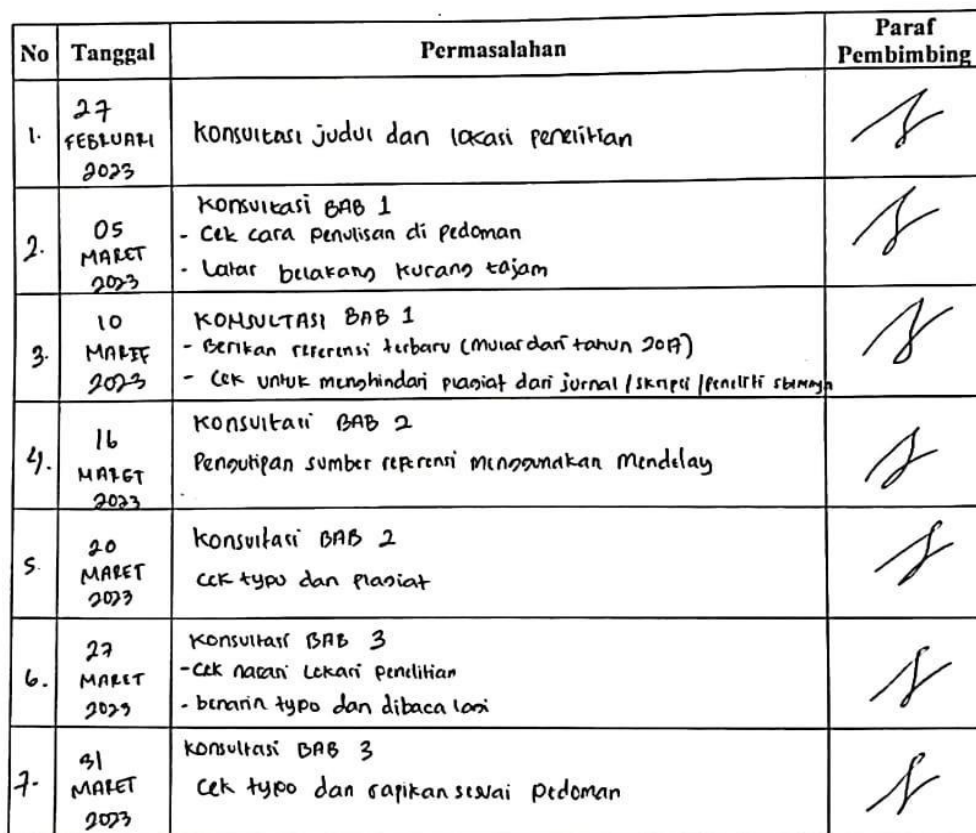 No Tanggal Permasalahan Paraf
Pembimbing
1. 27
FEBRUARI
2023
Konsultasi judul dan lokasi penelitian
2. 05
MARET
2023
Konsultasi BAB 1
- Cek cara penulisan di pedoman
- Latar belakang kurang tajam
3. 10
MARET
2023
KONSULTASI BAB 1
- Berikan referensi terbaru (mulai dari tahun 2017)
- Cek untuk menghindari plagiat dari jurnal / skripsi / peneliti
4. 16
MARET
2023
Konsultasi BAB 2
Pengutipan sumber referensi menggunakan Mendelay
5. 20
MARET
2023
Konsultasi BAB 2
cek typo dan plagiat
6. 27
MARET
2023
Konsultasi BAB 3
- Cek narasi Lokasi penelitian
- benarin typo dan dibaca lagi
7. 31
MARET
2023
Konsultasi BAB 3
Cek typo dan rapikan sesuai pedoman